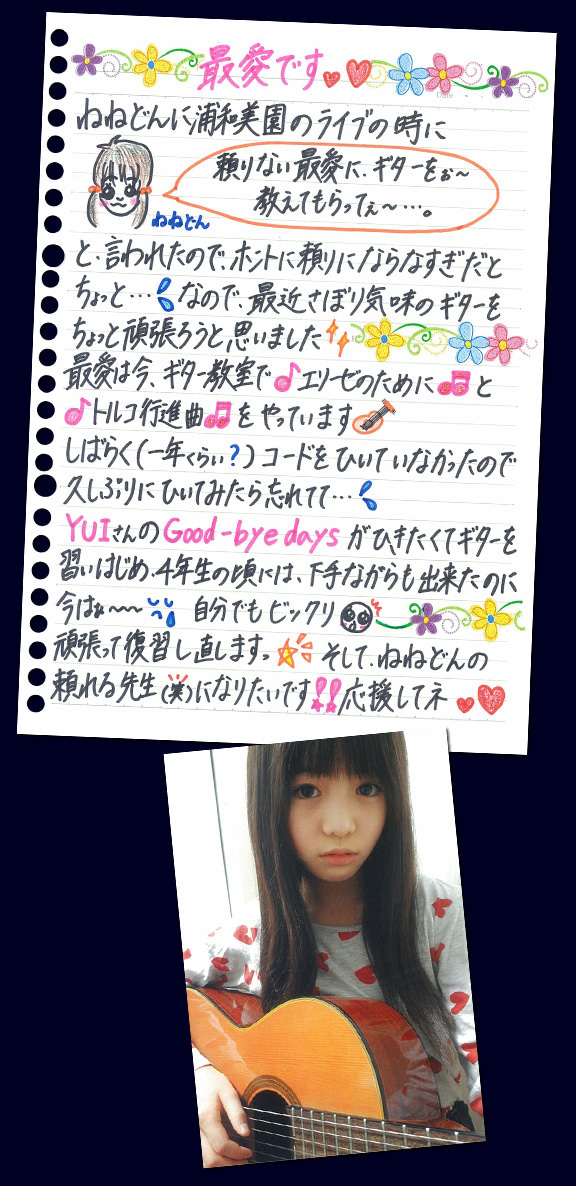 最愛です
ねねどんに浦和美園のライブの時に
頼りない最愛に、ギターをぉ～
教えてもらってぇ～…。
ねねどん
と、言われたので、ホントに頼りにならなすぎだと
ちょっと…なので、最近さぼり気味のギターを
ちょっと頑張ろうと思いました
最愛は今、ギター教室で♪エリーゼのために♫と
♪トルコ行進曲♫をやっています
しばらく(一年くらい?)コードをひいていなかったので
久しぶりにひいてみたら忘れてて…
YUIさんのGood-bye daysがひきたくてギターを
習いはじめ、4年生の頃には、下手ながらも出来たのに
今はぁ～～ 自分でもビックリ
頑張って復習し直します。 そして、ねねどんの
頼れる先生(笑)になりたいです!!応援してネ